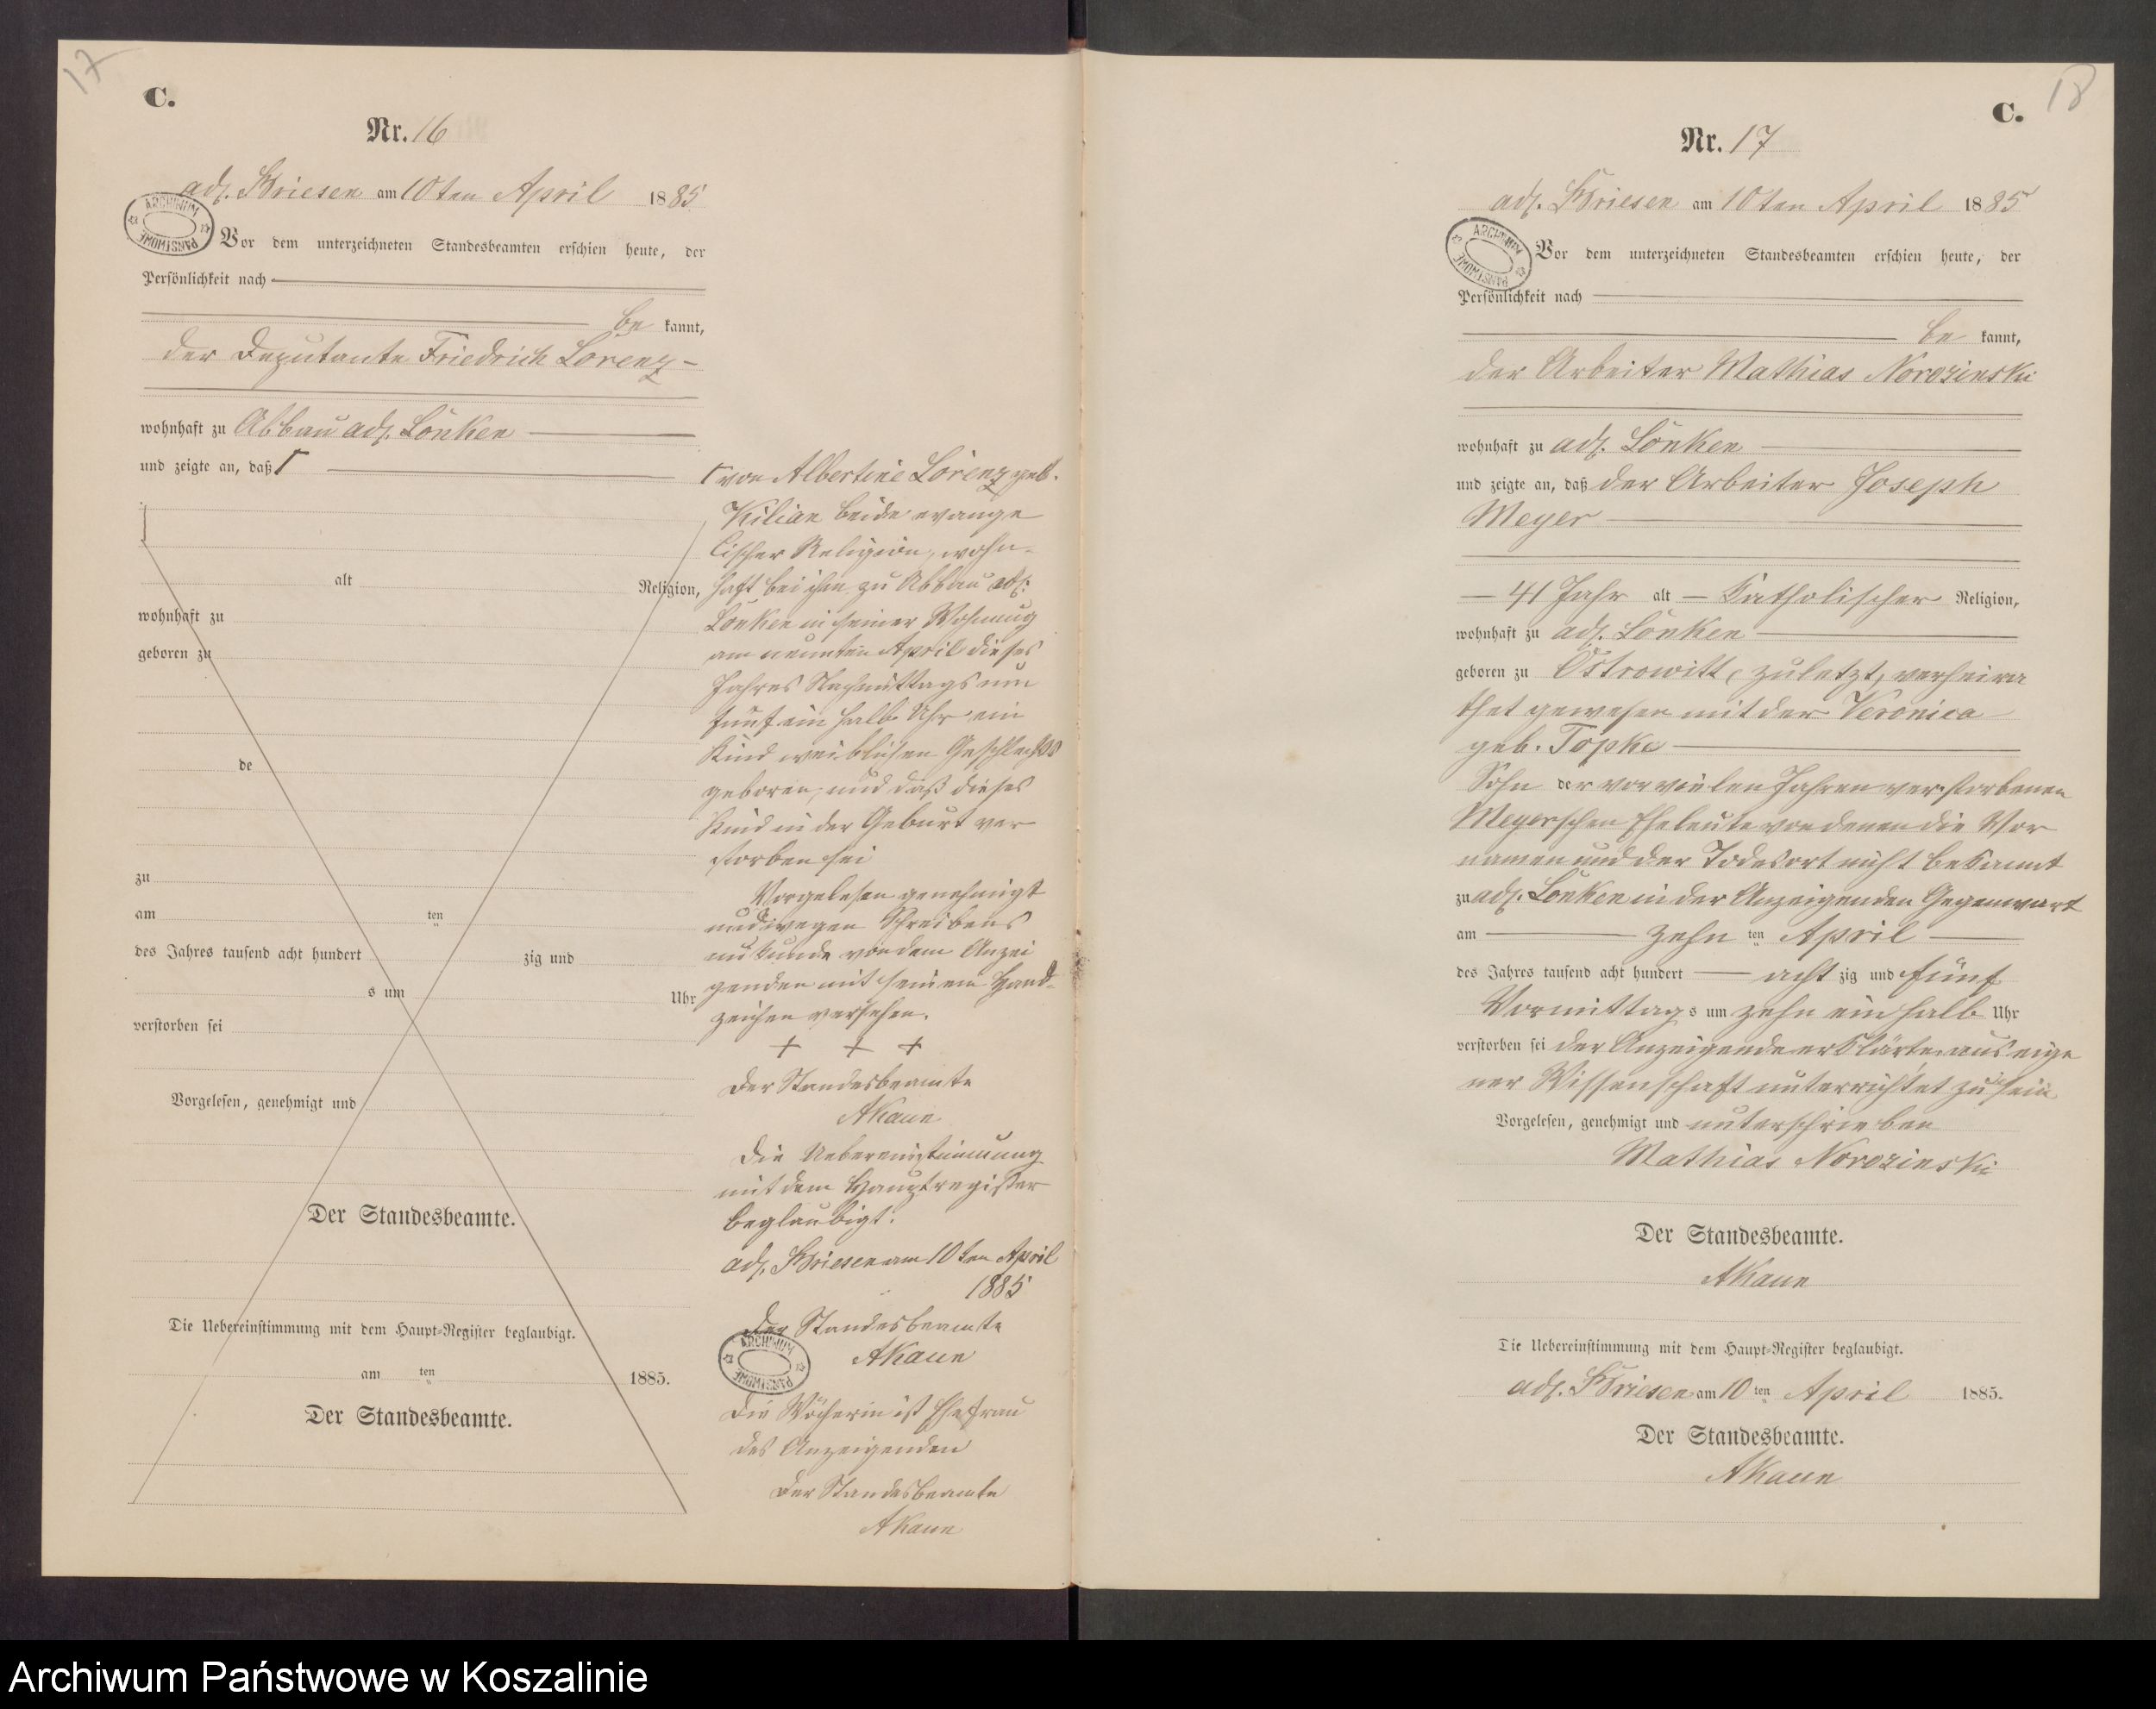 17
C.
Nr. 16
adl. Briesen am 10ten April 1885
ARCHIWUM PAŃSTWOWE
Vor dem unterzeichneten Standesbeamten erschien heute, der
Persönlichkeit nach
be kannt,
der Deputante Friedrich Lorenz
wohnhaft zu Abbau adl. Lönken
und zeigte an, daß Γ
alt Religion,
wohnhaft zu
geboren zu
de
zu
am ten
des Jahres tausend acht hundert zig und
s um Uhr
verstorben sei
Vorgelesen, genehmigt und
Der Standesbeamte.
Die Uebereinstimmung mit dem Haupt-Register beglaubigt.
am ten 1885.
Der Standesbeamte.
Γ von Albertine Lorenz geb.
Kilian beide evange
lischer Religion, wohn-
haft bei ihm zu Abbau adl:
Lönken in seiner Wohnung
am neunten April dieses
Jahres Nachmittags um
fünf ein halb Uhr ein
Kind weiblichen Geschlechts
geboren, und daß dieses
Kind in der Geburt ver
storben sei
Vorgelesen genehmigt
und wegen Schreibens
unkunde von dem Anzei
genden mit seinem Hand-
zeichen versehen.
+ + +
Der Standesbeamte
AKaun
Die Uebereinstimmung
mit dem Hauptregister
beglaubigt.
adl. Briesen am 10ten April
1885
Der Standesbeamte
AKaun
ARCHIWUM PAŃSTWOWE
Die Wöcherin ist Ehefrau
des Anzeigenden
Der Standesbeamte
AKaun
18
C.
Nr. 17
adl. Briesen am 10ten April 1885
ARCHIWUM PAŃSTWOWE
Vor dem unterzeichneten Standesbeamten erschien heute, der
Persönlichkeit nach
be kannt,
der Arbeiter Mathias Norozinski
wohnhaft zu adl. Lönken
und zeigte an, daß der Arbeiter Joseph
Meyer
41 Jahr alt Katholischer Religion,
wohnhaft zu adl. Lönken
geboren zu Ostrowitt, zuletzt, verheira
thet gewesen mit der Veronica
geb. Töpke
Sohn der vor vielen Jahren verstorbenen
Meyerschen Eheleute von denen die Vor
namen und der Todesort nicht bekannt
zu adl. Lönken in der Anzeigenden Gegenwart
am zehn ten April
des Jahres tausend acht hundert acht zig und fünf
Vormittag s um zehn ein halb Uhr
verstorben sei der Anzeigende erklärte aus eige
ner Wissenschaft unterrichtet zu sein
Vorgelesen, genehmigt und unterschrieben
Mathias Norozinski
Der Standesbeamte.
AKaun
Die Uebereinstimmung mit dem Haupt-Register beglaubigt.
adl. Briesen am 10 ten April 1885.
Der Standesbeamte.
AKaun
Archiwum Państwowe w Koszalinie